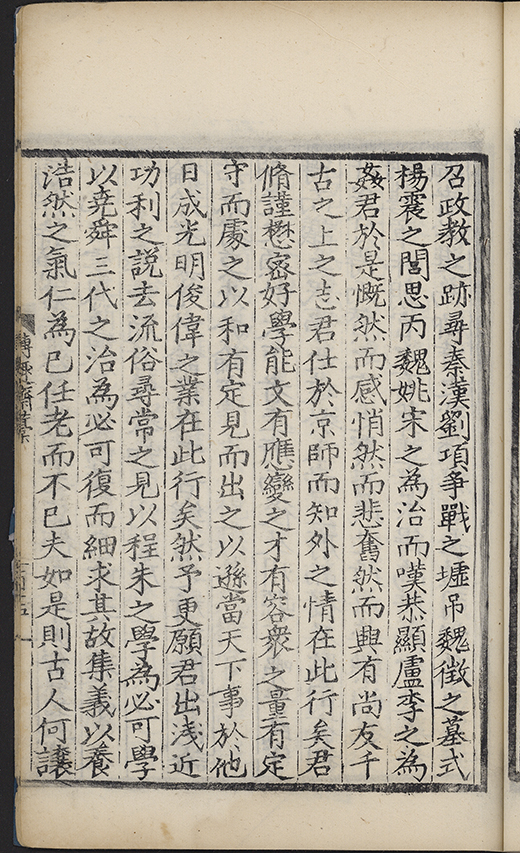 召政教之跡尋秦漢劉項爭戰之墟吊魏徵之墓式
楊震之閭思丙魏姚宋之為治而嘆恭顯盧李之為
姦君於是慨然而感悄然而悲奮然而興有尚友千
古之上之志君仕於京師而知外之情在此行矣君
脩謹懋密好學能文有應變之才有容衆之量有定
守而處之以和有定見而出之以遜當天下事於他
日成光明俊偉之業在此行矣然予更願君出浅近
功利之說去流俗尋常之見以程朱之學為必可學
以堯舜三代之治為必可復而細求其故集義以養
浩然之氣仁為已任老而不已夫如是則古人何讓